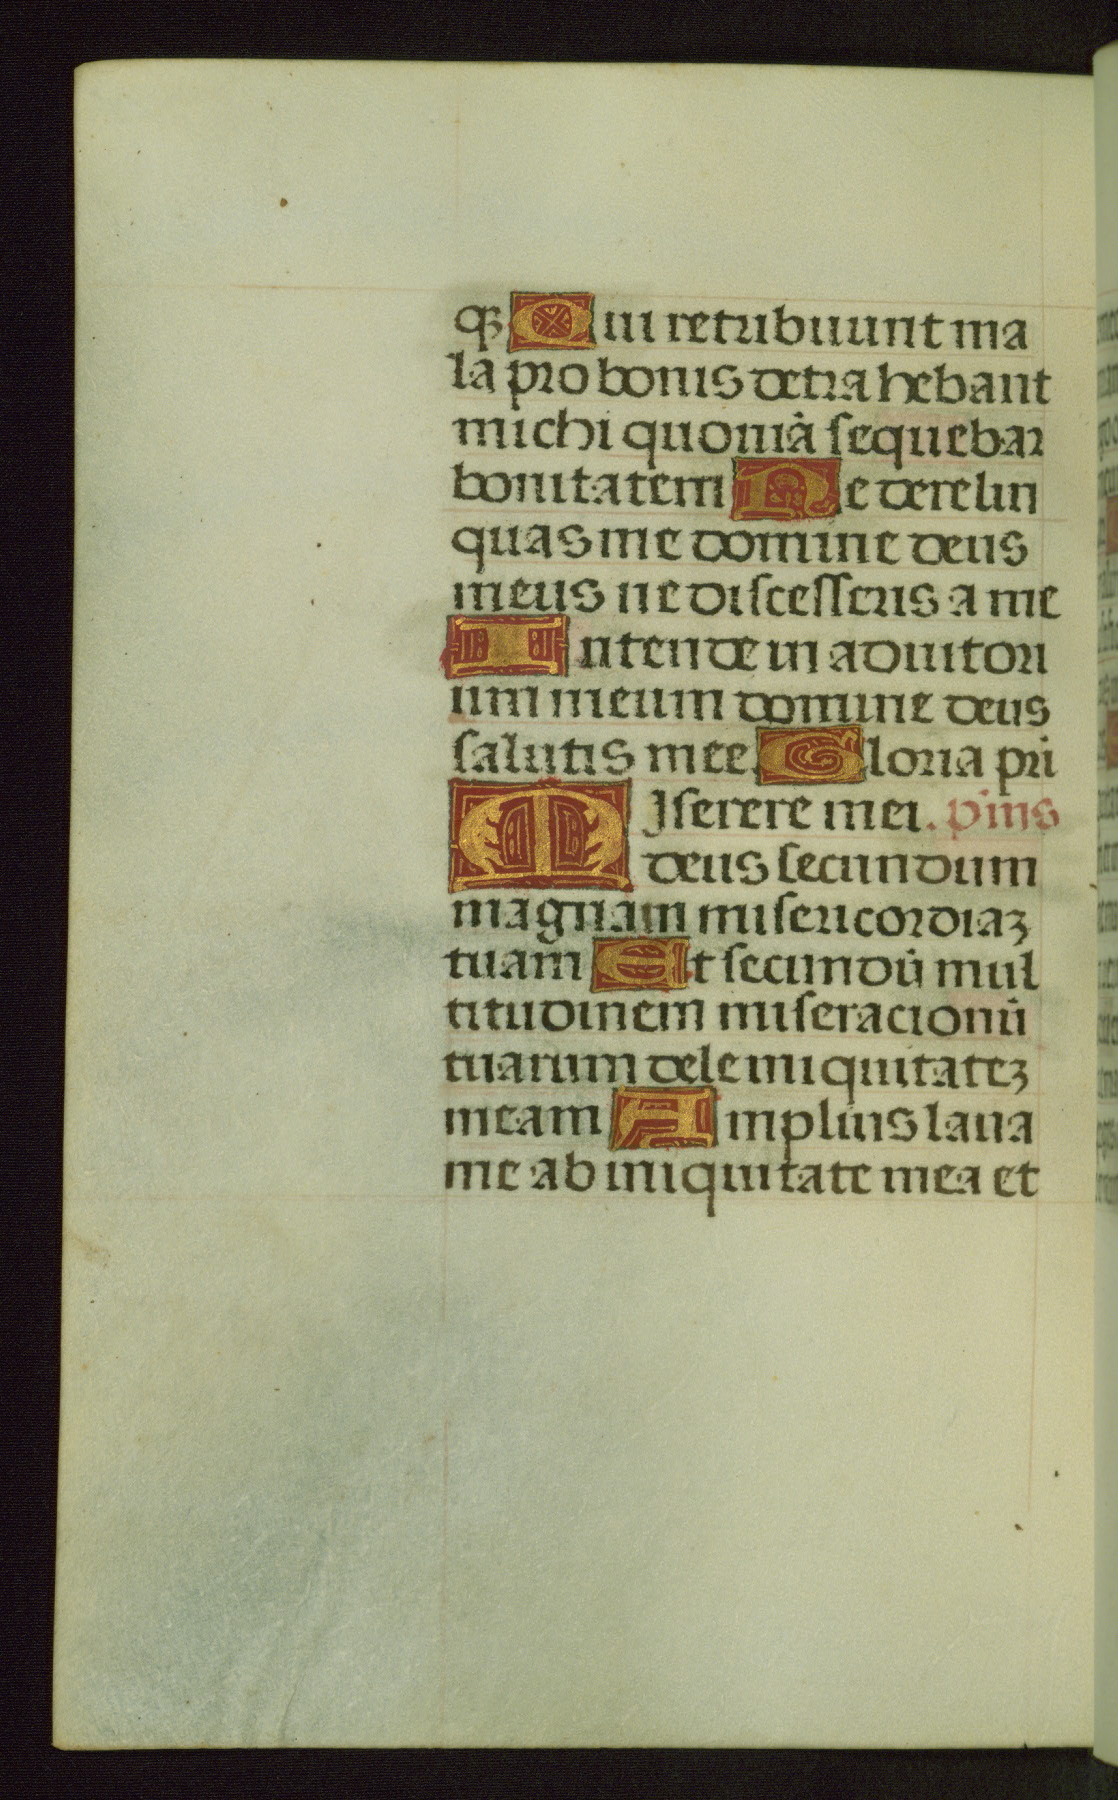 qꝫ Qui retribuunt ma
la pro bonis detrahebant
michi quoniā sequebar
bonitatem Ne derelin
quas me domine deus
meus ne discesseris a me
Intende in adiutori
um meum domine deus
salutis mee Gloria pri
MIserere mei. p̄ius
deus secundum
magnam misericordiaꝫ
tuam Et secundū mul
titudinem miseracionū
tuarum dele iniquitateꝫ
meam Amplius laua
me ab iniquitate mea et